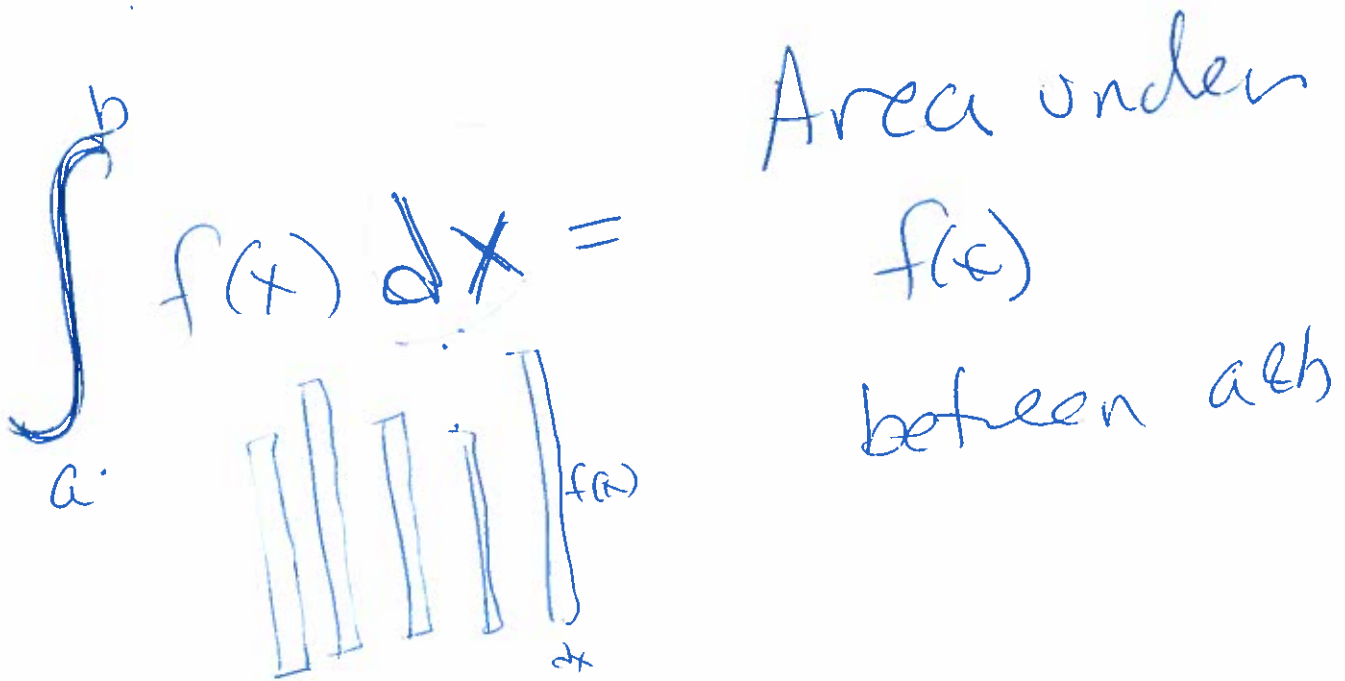 ∫ b a f(x) dx =
Area under
f(x)
between a & b
f(x)
dx